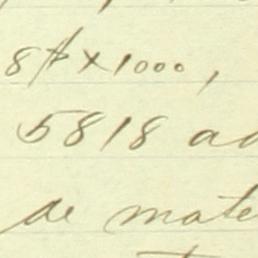 8 $ x 1000,
5818 ad
de mate